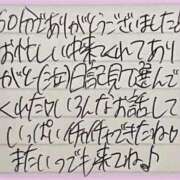 60分でありがとうございました!
お忙しい中来てくれてあり
がとう(泣)日記見て選んで
くれたりいろんなお話して
いっぱいイチャイチャできたね♡
またいつでも来てね♪